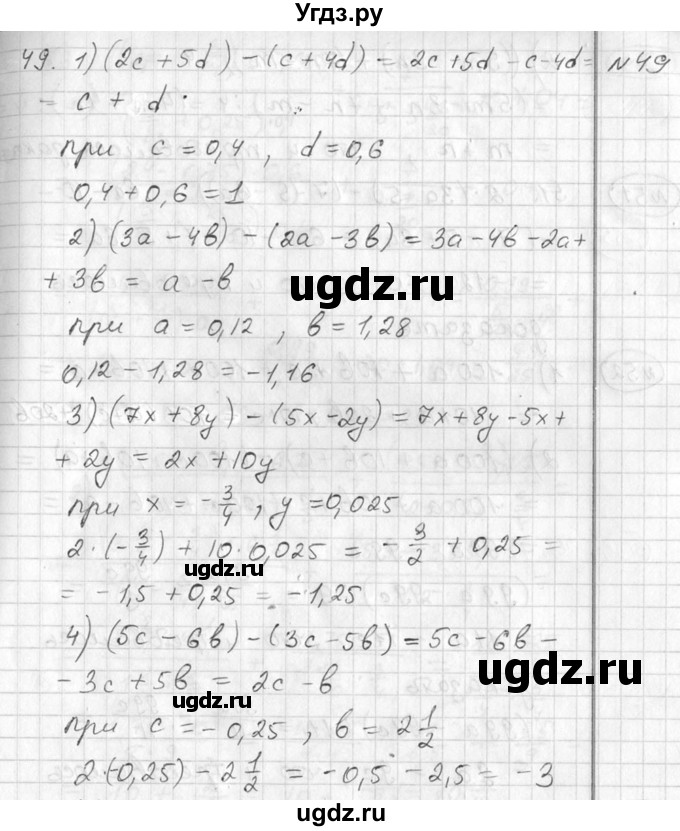 Угдз.ру
49. 1) (2c + 5d) - (c + 4d) = 2c + 5d - c - 4d = №49
= c + d.
при c = 0,4, d = 0,6
0,4 + 0,6 = 1
2) (3a - 4b) - (2a - 3b) = 3a - 4b - 2a +
+ 3b = a - b
ugdz.ru
при a = 0,12, b = 1,28
0,12 - 1,28 = -1,16
3) (7x + 8y) - (5x - 2y) = 7x + 8y - 5x +
+ 2y = 2x + 10y
при x = -3/4, y = 0,025
2·(-3/4) + 10·0,025 = -3/2 + 0,25 =
ugdz.ru
= -1,5 + 0,25 = -1,25
4) (5c - 6b) - (3c - 5b) = 5c - 6b -
ugdz.ru
- 3c + 5b = 2c - b
ugdz.ru
при c = -0,25, b = 2 1/2
2·(-0,25) - 2 1/2 = -0,5 - 2,5 = -3
ugdz.ru